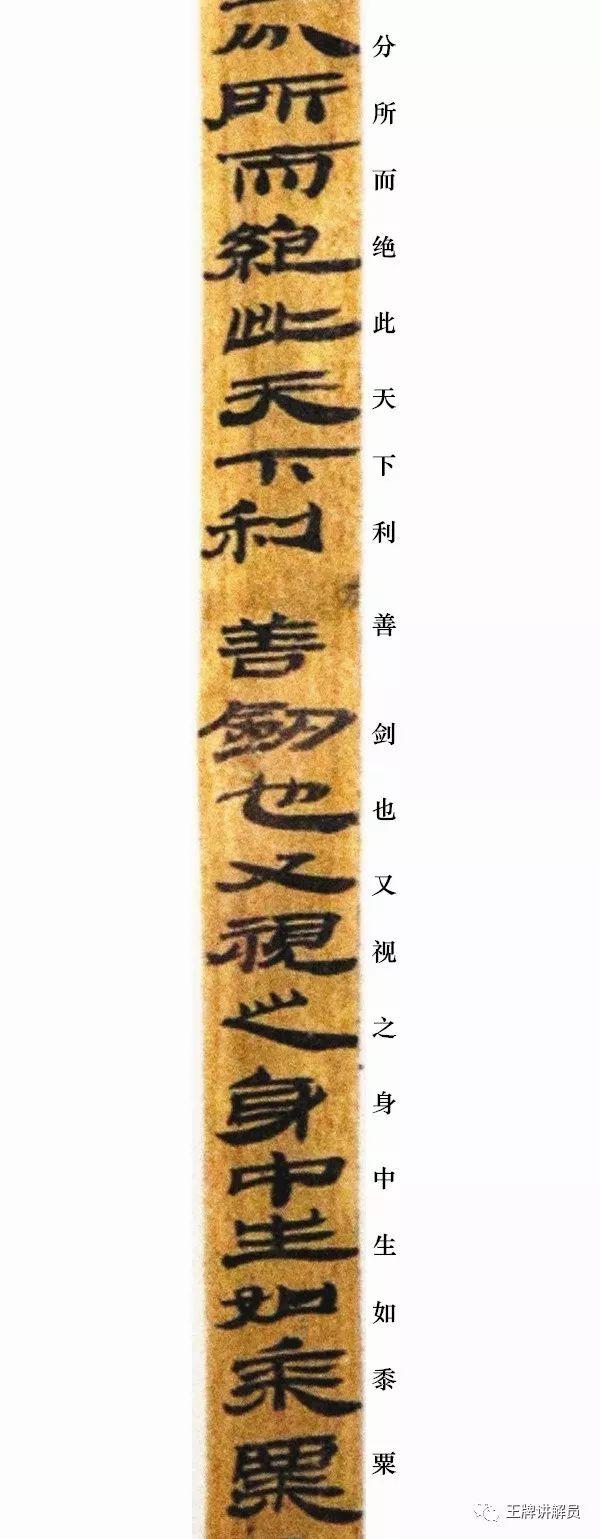 分所而絕此天下利善劒也又視之身中生如黍粟
分所而绝此天下利善剑也又视之身中生如黍粟
王牌讲解员